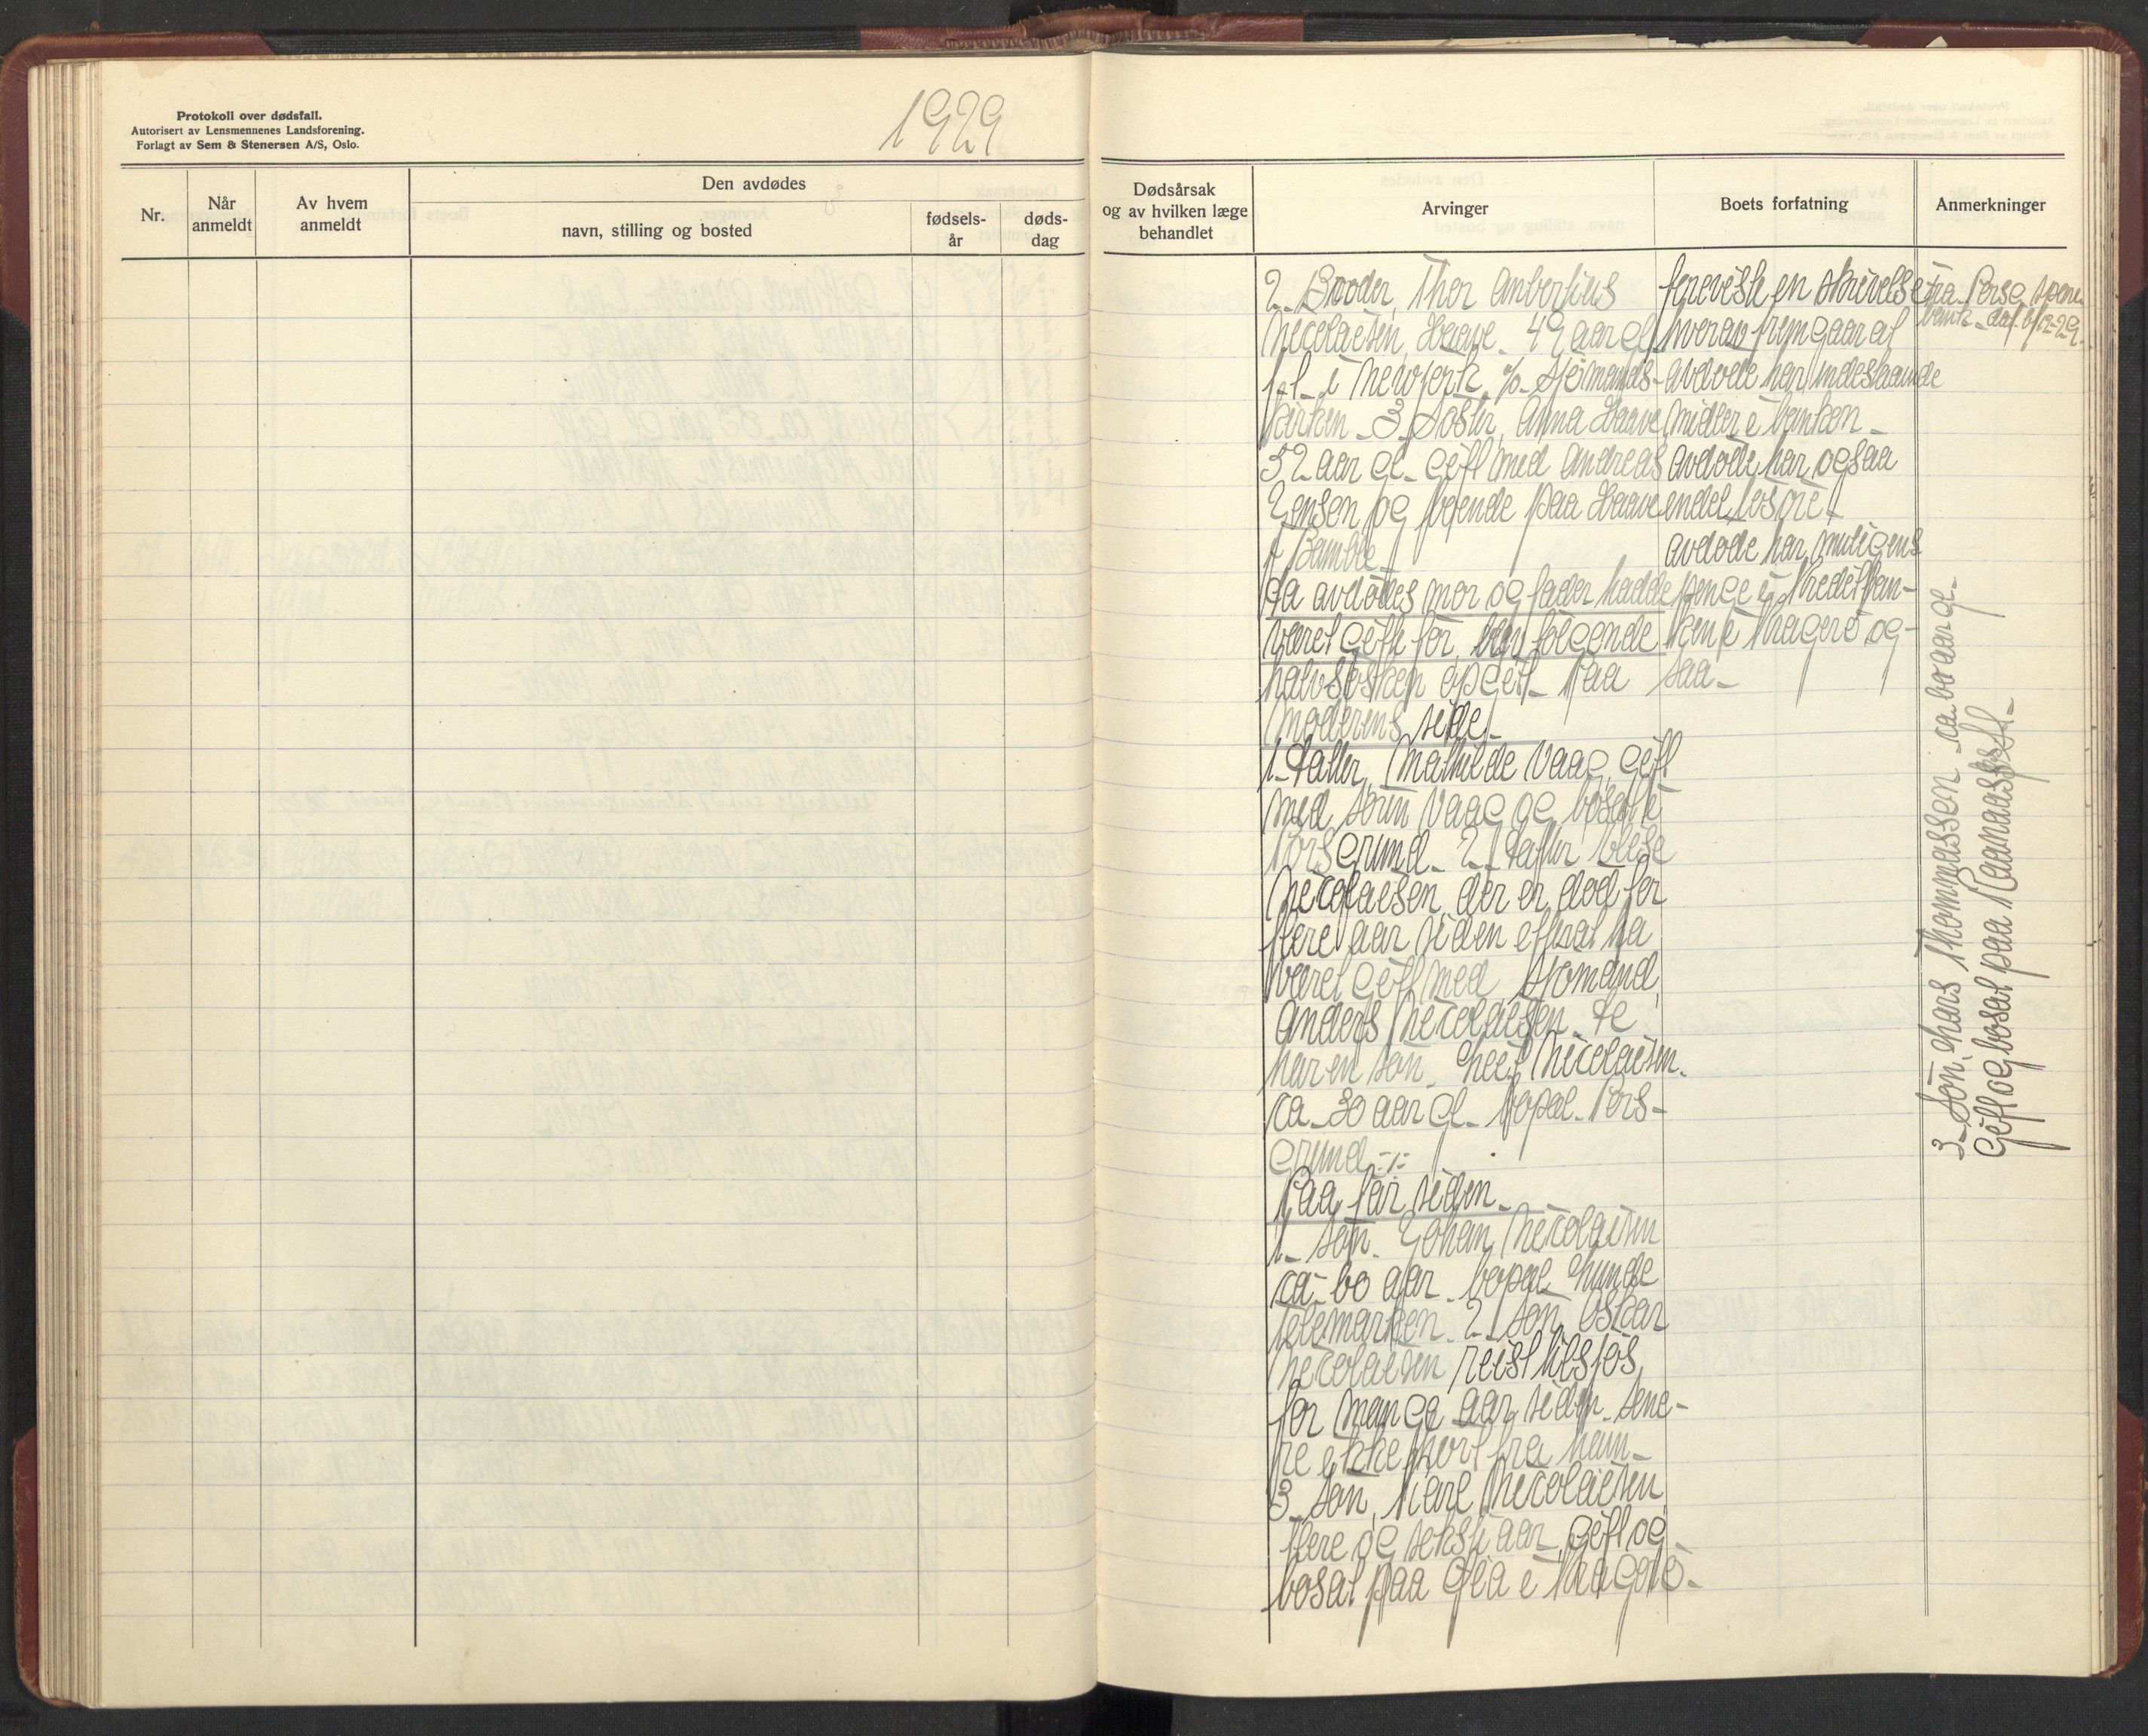 Protokoll over dødsfall.
Autorisert av Lensmennenes Landsforening.
Forlagt av Sem & Stenersen A/S, Oslo.
1929
Nr.
Når
anmeldt
Av hvem
anmeldt
Den avdødes
navn, stilling og bosted
fødsels-
år
døds-
dag
Dødsårsak
og av hvilken læge
behandlet
Arvinger
Boets forfatning
Anmerkninger
2. Broder, Thor Anbertius
Nicolaisen, Haave. 49 aar gl.
f. t. i Newjork, % Sjømands-
kirken. 3. Søster, Anna Haave
52 aar gl. gift med Andreas
Jensen og boende paa Haave
i Bamble.
Da avdødes mor og fader hadde
været gifte før, blev følgende
halvsøsken opgit. Paa
moderens side.
1. Datter, Mathilde Vaag, gift
med Sørin Vaag og bosat i
Porsgrund. 2. Datter
Nicolaisen, der er død for
flere aar siden efterat ha
været gift med Sjømand
Anders Nicolaisen. De
har en søn. Leif Nicolaisen.
ca. 30 aar gl. bopæl. Pors-
grund -:-
Paa far siden.
1. Søn. Johan Nicolaisen
ca. 60 aar. bopæl Lunde
Telemarken. 2. Søn Oskar
Nicolaisen reist tilsjøs
for mange aar siden. Sene-
re ikke hørt fra ham.
3. Søn, Karl Nicolaisen
flere og seksti aar, gift og
bosat paa Øia i Kragerø.
foreviste en skrivelse fra Porsg. Spare-
bank. dat. 6/12-29.
hverav fremgaar at
avdøde har indestaaende
midler i banken.
avdøde har ogsaa
endel løsøre.
avdøde har muligens
penge i Kreditban-
ken i Kragerø og-
saa.
3. Søn, Hans Thommassen ca. 60 aar gl.
Gift og bosat paa